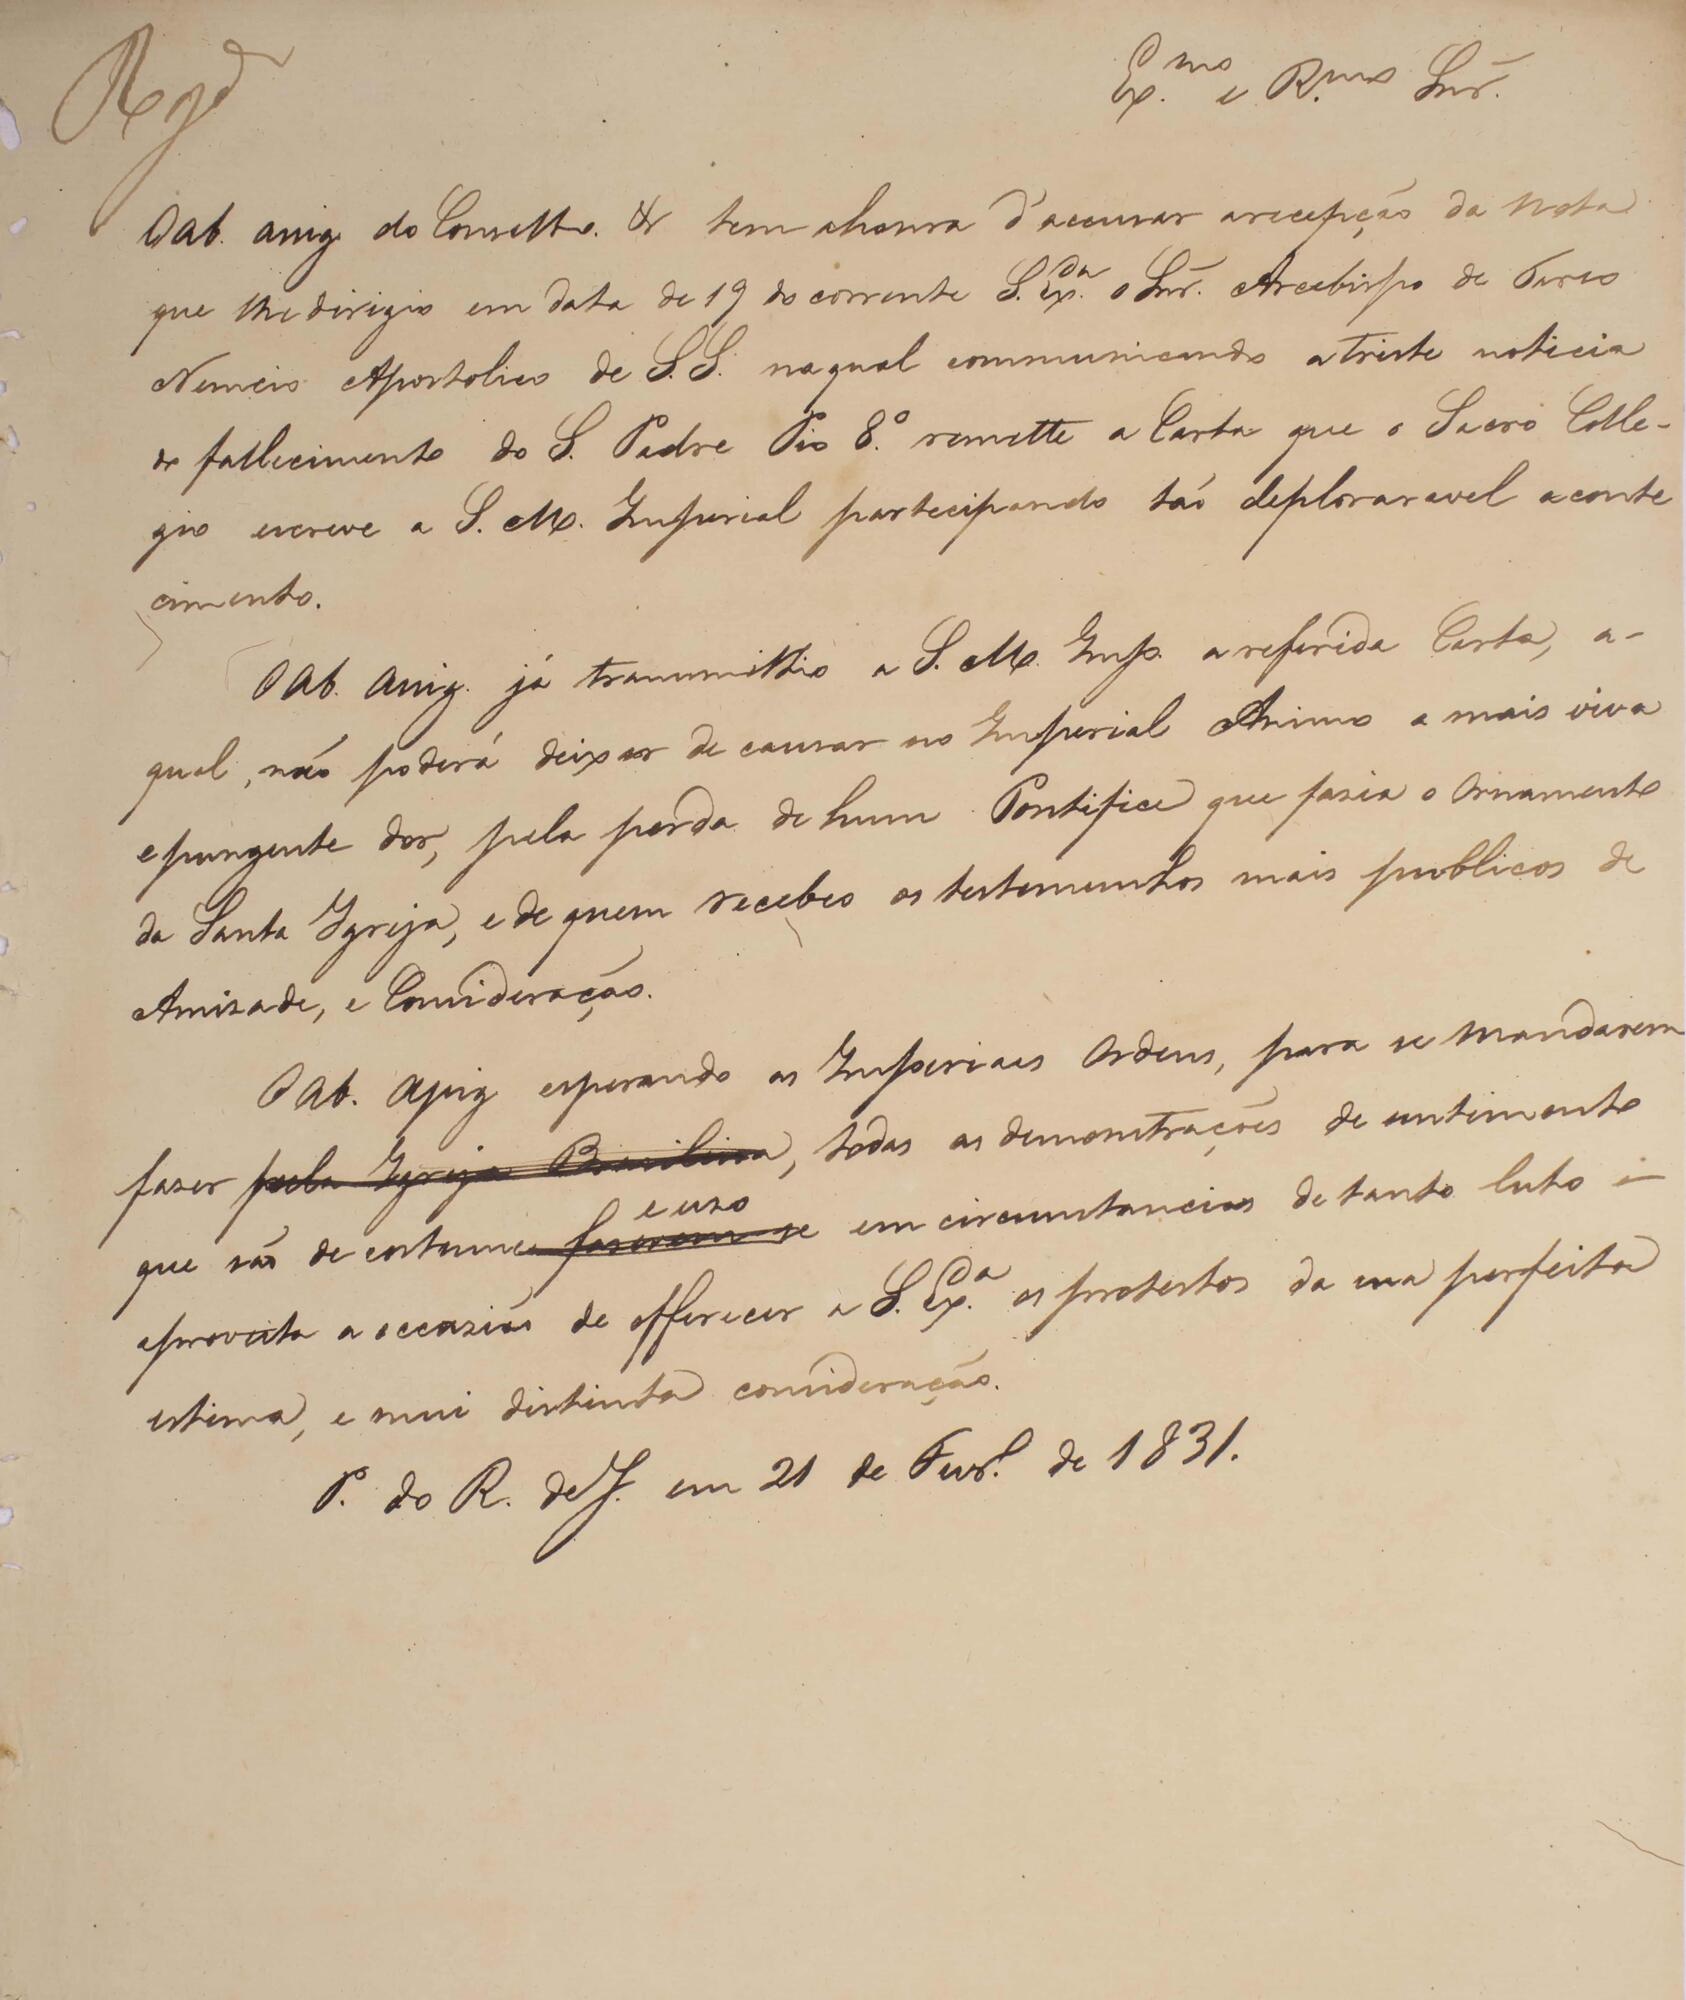 Regd
Ex.mo e R.mo Snr.
O Ab. assig. do Conselho. & tem a honra d'accusar a recepção da Nota
que lhe dirigio em data de 19 do corrente S. Ex.cia o Snr. Arcebispo de Tarso
Nuncio Apostolico de S.S. na qual communicando a triste noticia
do fallecimento do S. Padre Pio 8.º remette a Carta que o Sacro Colle-
gio escreve a S. M. Imperial partecipando tão deploraravel aconte
cimento.
O Ab. assig. já transmittio a S. M. Imp. a referida Carta, a-
qual, não poderá deixar de causar no Imperial Animo a mais viva
e pungente dor, pela perda de hum Pontifice que fasia o Ornamento
da Santa Igreja, e de quem recebeo os testemunhos mais publicos de
Amisade, e Consideração.
O Ab. assig esperando as Imperiaes Ordens, para se mandarem
faser pela Igreja Brasileira, todas as demonstrações de sentimento
e uso
que são de costume faserem se em circumstancias de tanto luto
aproveita a occasião de offerecer a S. Ex.cia os protestos da sua perfeita
estima, e mui distinta consideração.
P. do R. de J. em 21 de Fevr.º de 1831.